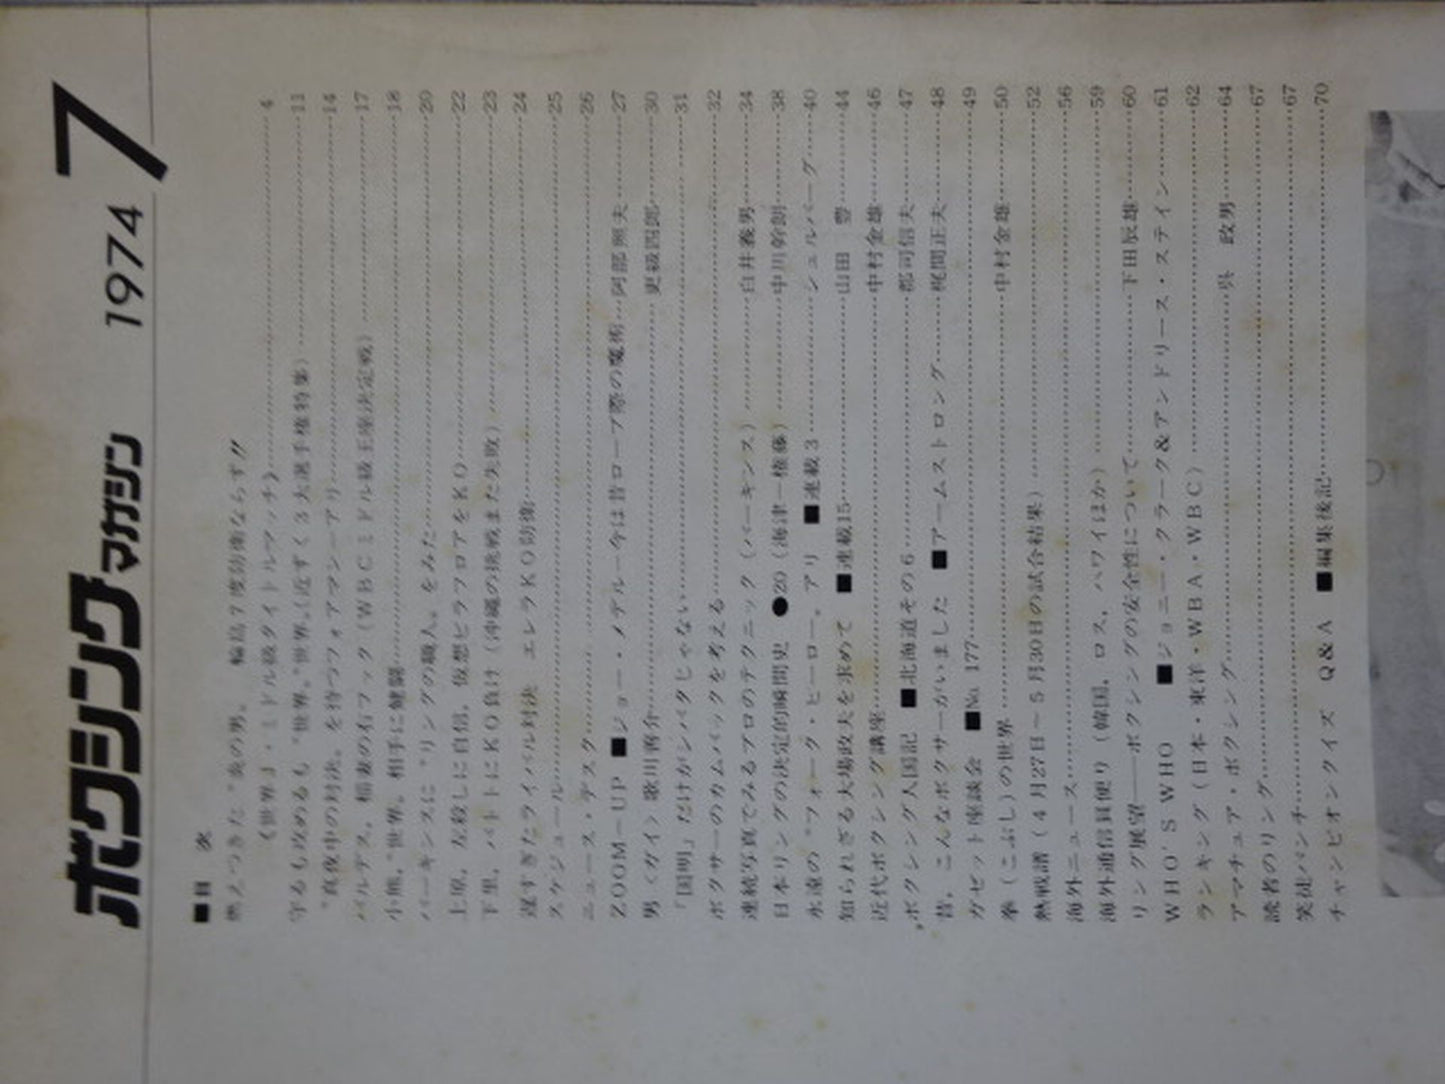 ボクシングマガジン 1974 7
■目 次
燃えつきた“炎の男” 輪島7度防衛ならず!!
《世界J・ミドル級タイトルマッチ》 4
守るも攻めるも“世界”(近ずく3大選手権特集) 11
“真夜中の対決”を待つフォアマン―アリ 14
バルデス、稲妻の右フック(WBCミドル級王座決定戦) 17
小熊、“世界”相手に健闘 18
パーキンスに“リングの職人”をみた 20
上原、左殺しに自信、仮想ビラフロアをKO 22
下里、バトトにKO負け(沖縄の挑戦また失敗) 23
遅すぎたライバル対決 エレラKO防衛 24
スケジュール 25
ニュース・デスク 26
ZOOM-UP ■ジョー・メデル―今は昔ロープ際の魔術 阿部照夫 27
男<ガイ>歌川善介 更級四郎 30
「国明」だけがシバタじゃない 31
ボクサーのカムバックを考える 32
連続写真でみるプロのテクニック(パーキンス) 白井義男 34
日本リングの決定的瞬間史 ●20(海津―権藤) 中川幹朗 38
永遠の“フォーク・ヒーロー”アリ ■連載3 シュルバーグ 40
知られざる大場政夫を求めて ■連載15 山田 豊 44
近代ボクシング講座 中村金雄 46
ボクシング人国記 ■北海道その6 郡司信夫 47
昔、こんなボクサーがいました ■アームストロング 梶間正夫 48
ガゼット座談会 ■No.177 49
拳(こぶし)の世界 中村金雄 50
熱戦譜(4月27日~5月30日の試合結果) 52
海外ニュース 56
海外通信員便り(韓国、ロス、ハワイほか) 59
リング展望――ボクシングの安全性について 下田辰雄 60
WHO'S WHO ■ジョニー・クラーク&アンドリース・ステイン 61
ランキング(日本・東洋・WBA・WBC) 62
アマチュア・ボクシング 呉 政男 64
読者のリング 67
笑徒パンチ 67
チャンピオンクイズ Q&A ■編集後記 70